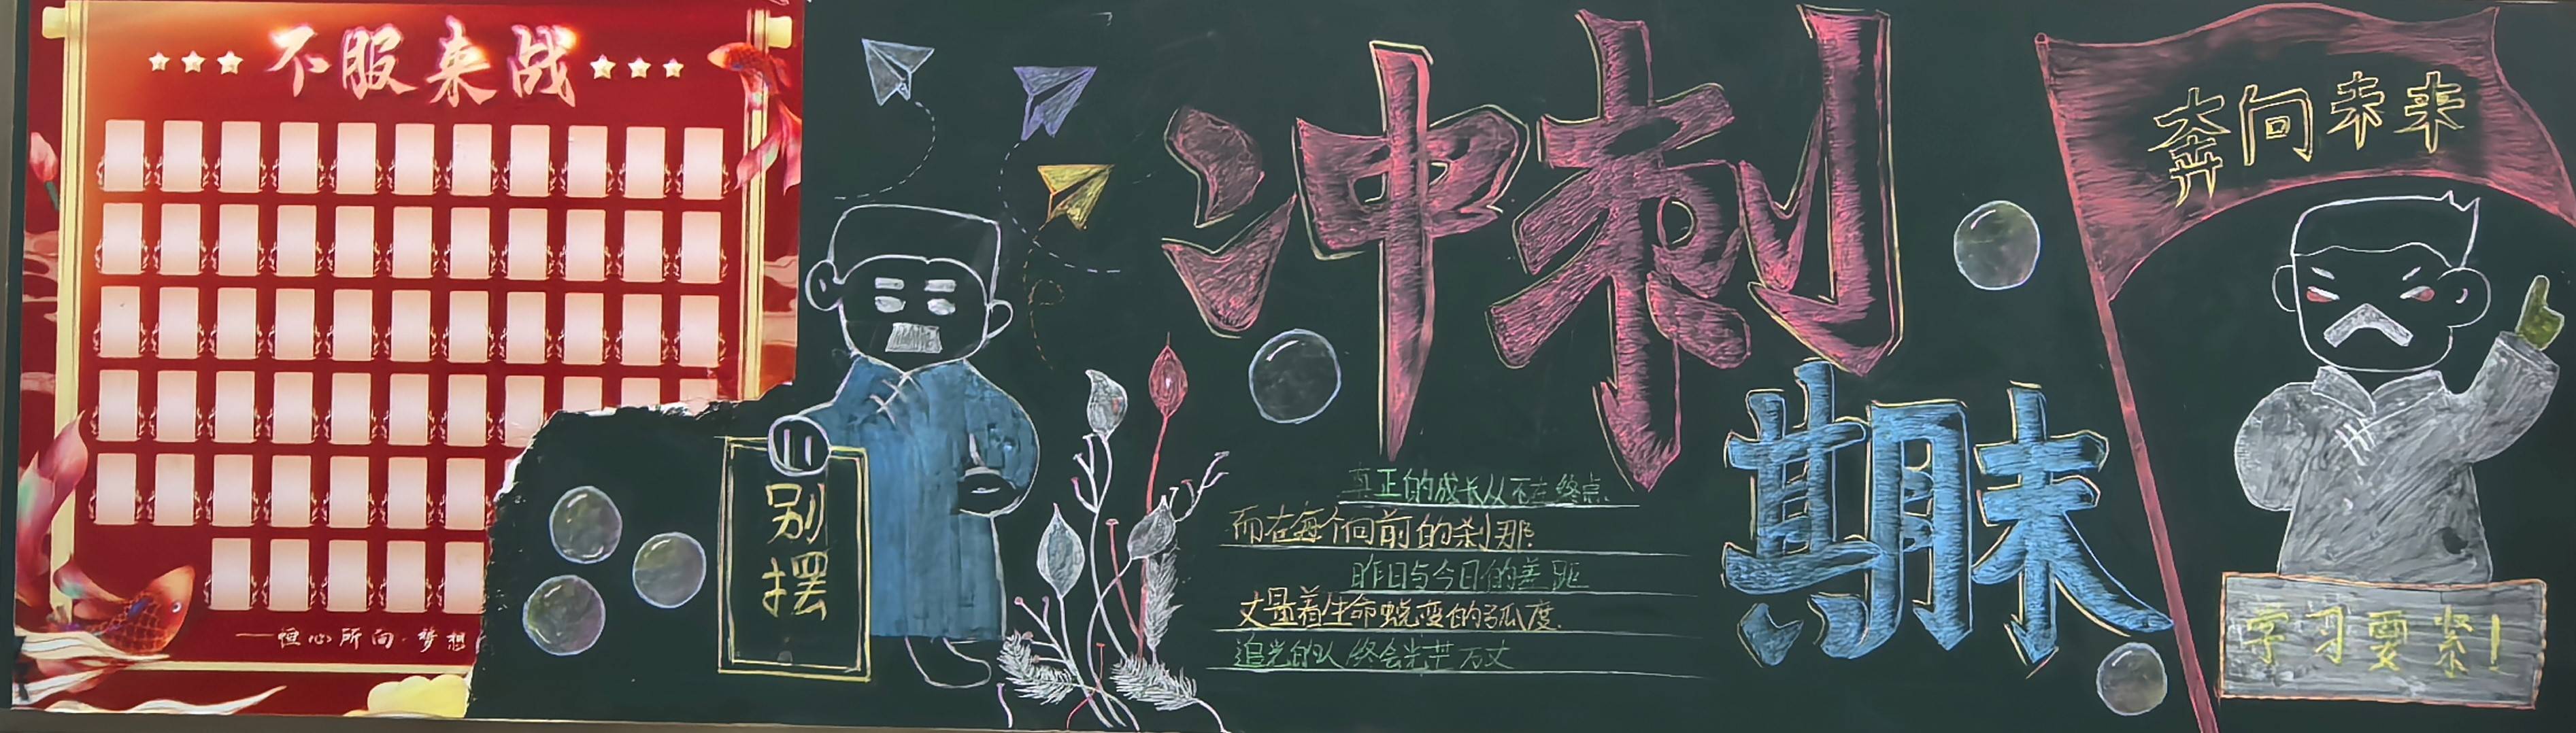 不服来战
恒心所向·梦想
别摆
冲刺
期末
真正的成长从不在终点
而在每个向前的刹那
昨日与今日的差距
丈量着生命蜕变的弧度
追光的人终会光芒万丈
奔向未来
学习要紧！